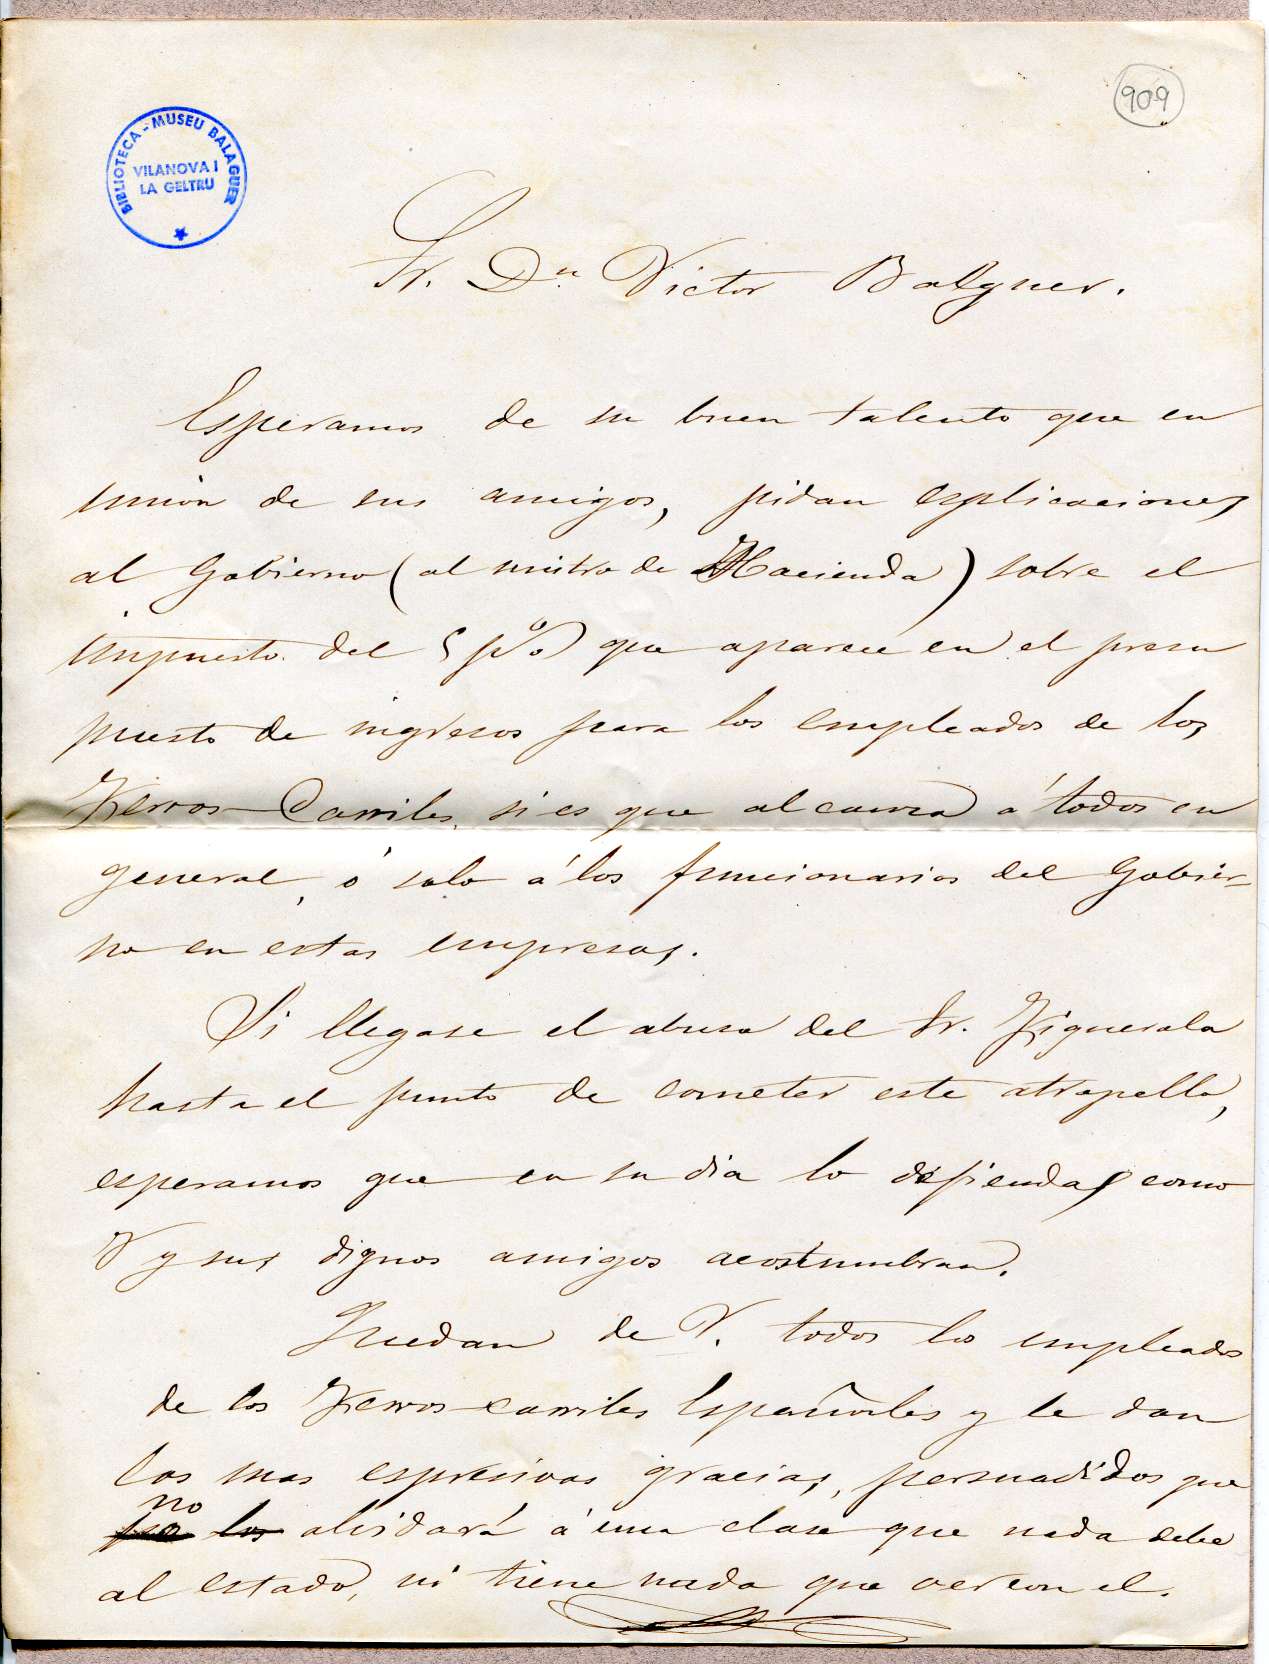 909
BIBLIOTECA - MUSEU BALAGUER
VILANOVA I
LA GELTRU
Sr. Dn. Victor Balaguer.
Esperamos de su buen talento que en
union de sus amigos, pidan esplicaciones
al Gobierno (al mntro de Hacienda) sobre el
impuesto del 5 p% que aparece en el presu
puesto de ingresos para los empleados de los
Ferros-Carriles, si es que alcanza á todos en
general, ó solo á los funcionarios del Gobier-
no en estas empresas.
Si llegase el abuso del Sr. Figuerola
hasta el punto de cometer este atropello,
esperamos que en su dia lo defiendas como
V y sus dignos amigos acostumbran.
Quedan de V. todos los empleados
de los Ferros-carriles Españoles y le dan
las mas espresivas gracias, persuadidos que
no olvidará á una clase que nada debe
al estado, ni tiene nada que ver con el.